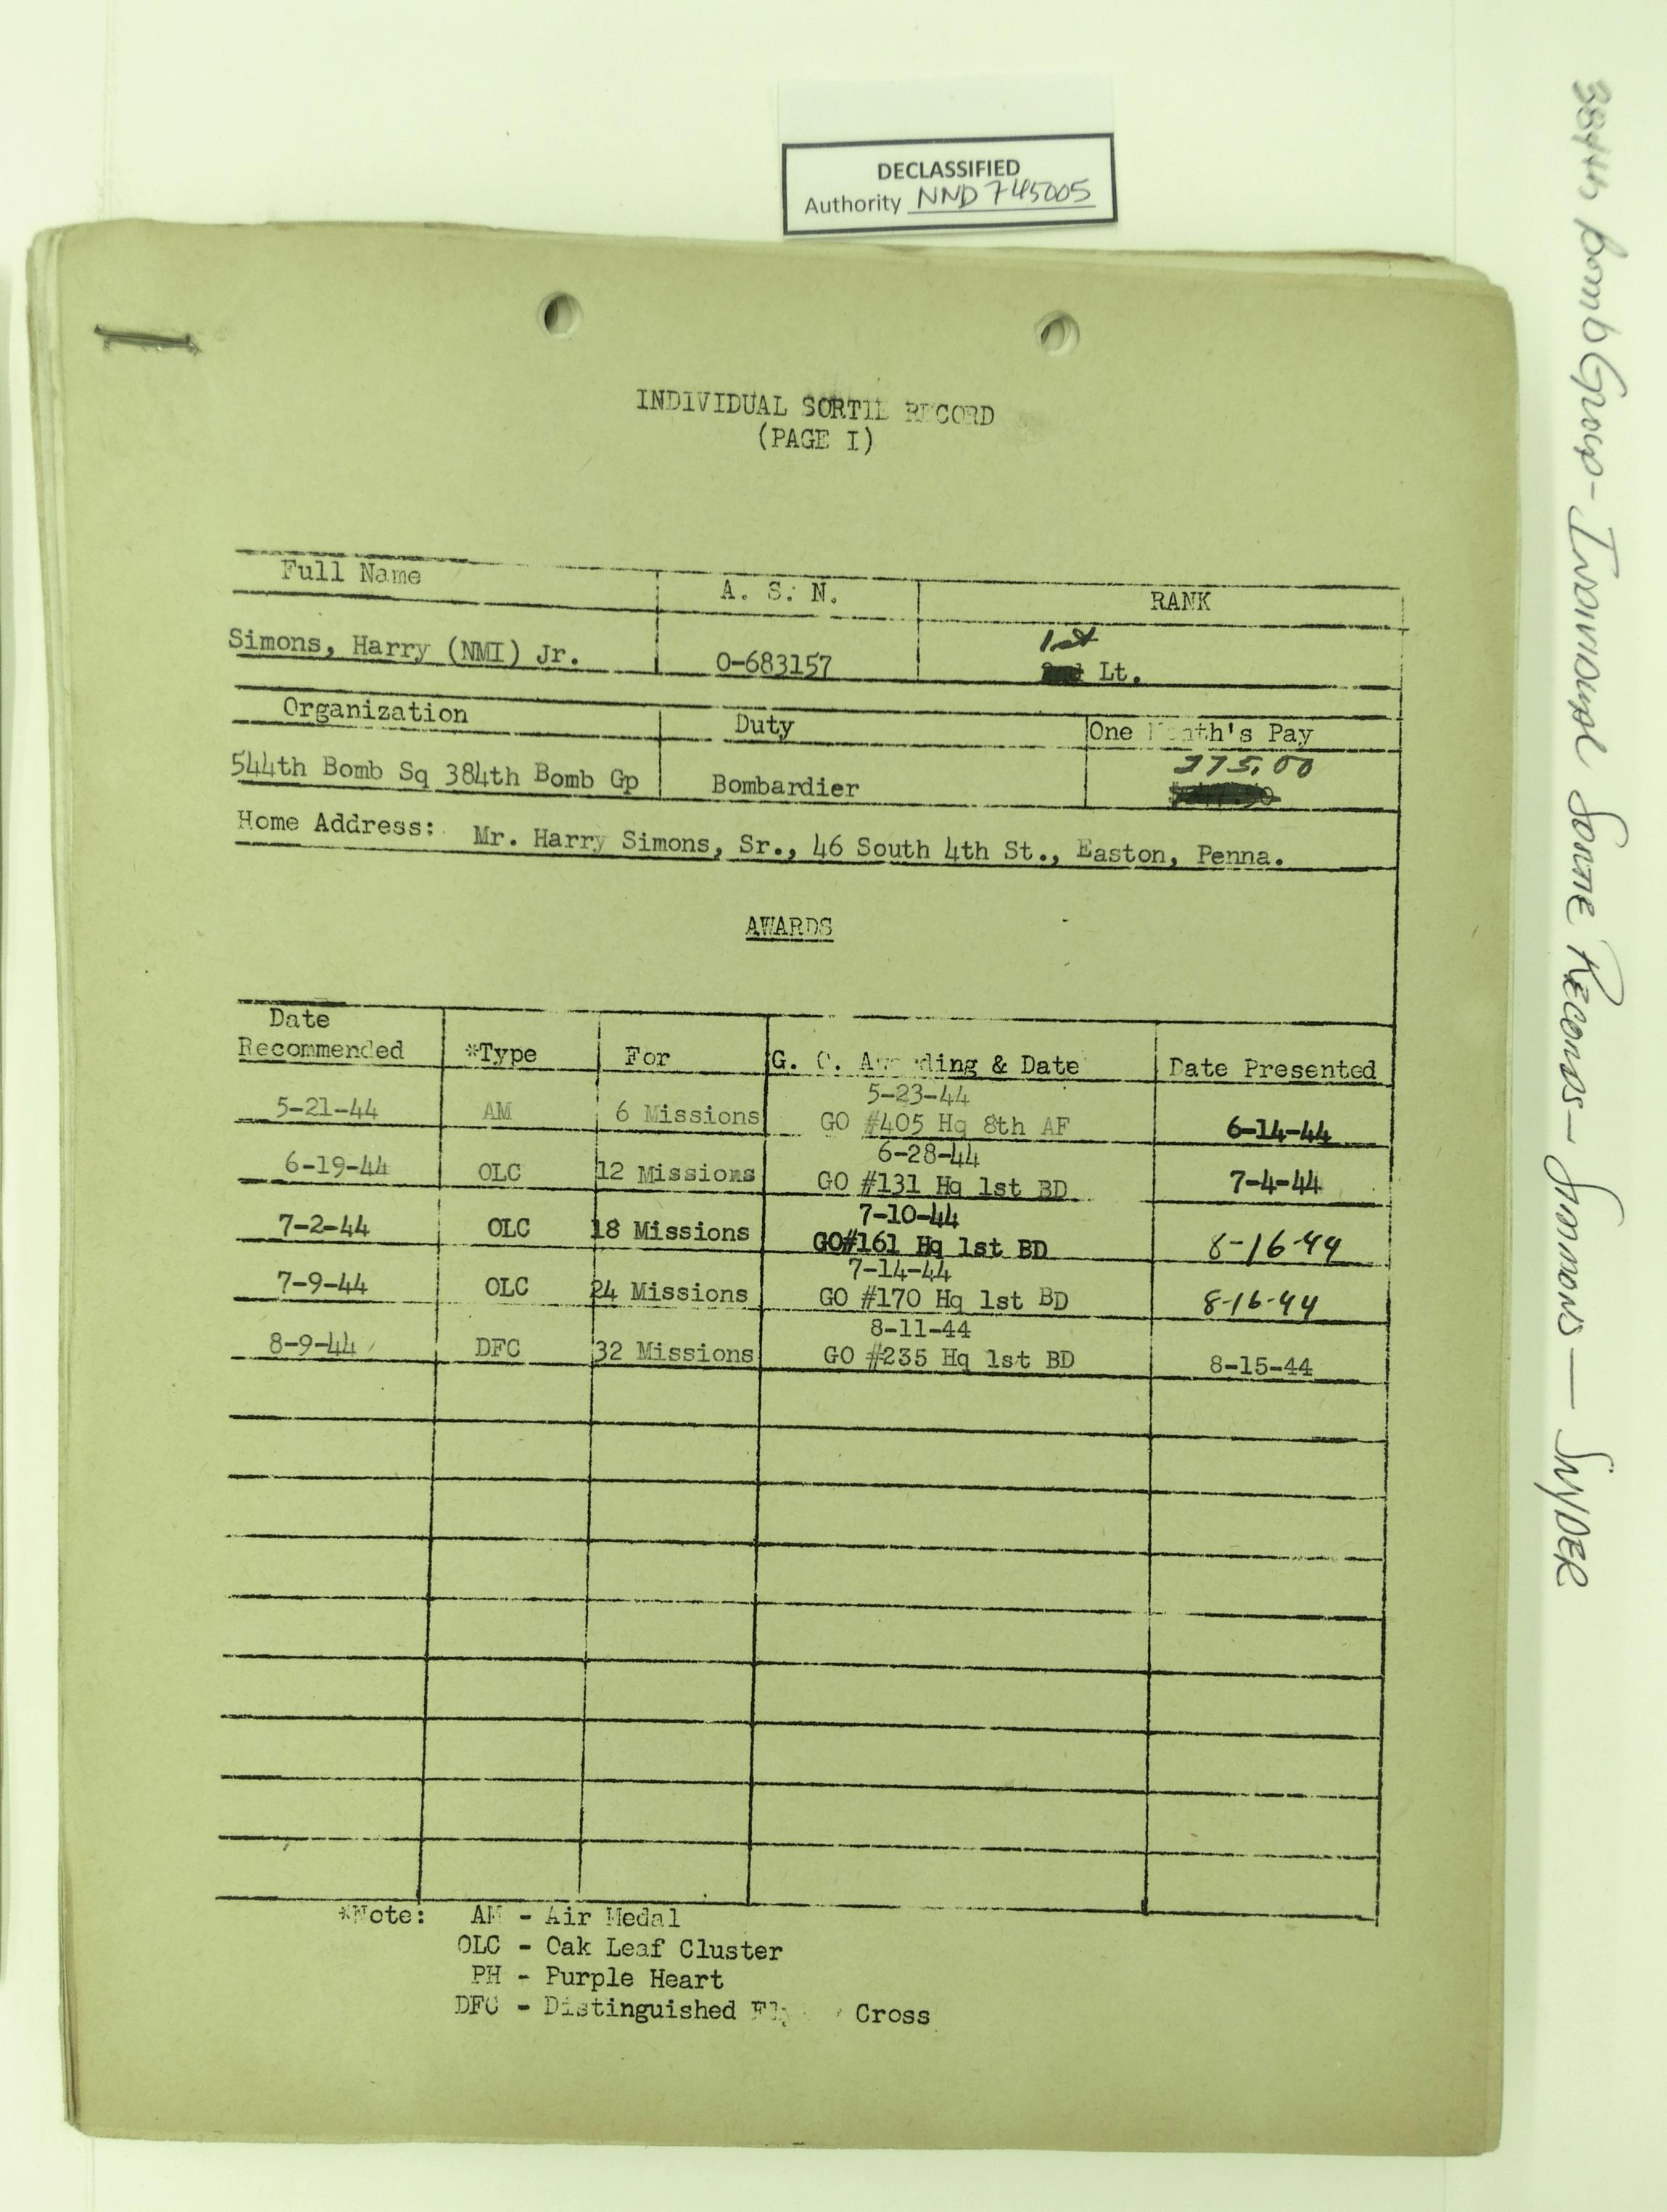 DECLASSIFIED
Authority NND 745005
INDIVIDUAL SORTIE RECORD
(PAGE I)
Full Name A. S. N. RANK
1st
Simons, Harry (NMI) Jr. O-683157 Lt.
Organization Duty One Month's Pay
275.00
544th Bomb Sq 384th Bomb Gp Bombardier
Home Address: Mr. Harry Simons, Sr., 46 South 4th St., Easton, Penna.
AWARDS
Date
Recommended *Type For G. O. Awarding & Date Date Presented
5-23-44
5-21-44 AM 6 Missions GO #405 Hq 8th AF 6-14-44
6-28-44
6-19-44 OLC 12 Missions GO #131 Hq 1st BD 7-4-44
7-10-44
7-2-44 OLC 18 Missions GO#161 Hq 1st BD 8-16-44
7-14-44
7-9-44 OLC 24 Missions GO #170 Hq 1st BD 8-16-44
8-11-44
8-9-44 DFC 32 Missions GO #235 Hq 1st BD 8-15-44
*Note: AM - Air Medal
OLC - Oak Leaf Cluster
PH - Purple Heart
DFC - Distinguished Flying Cross
384th Bomb Group - Individual Sortie Records - Simmons — Snyder